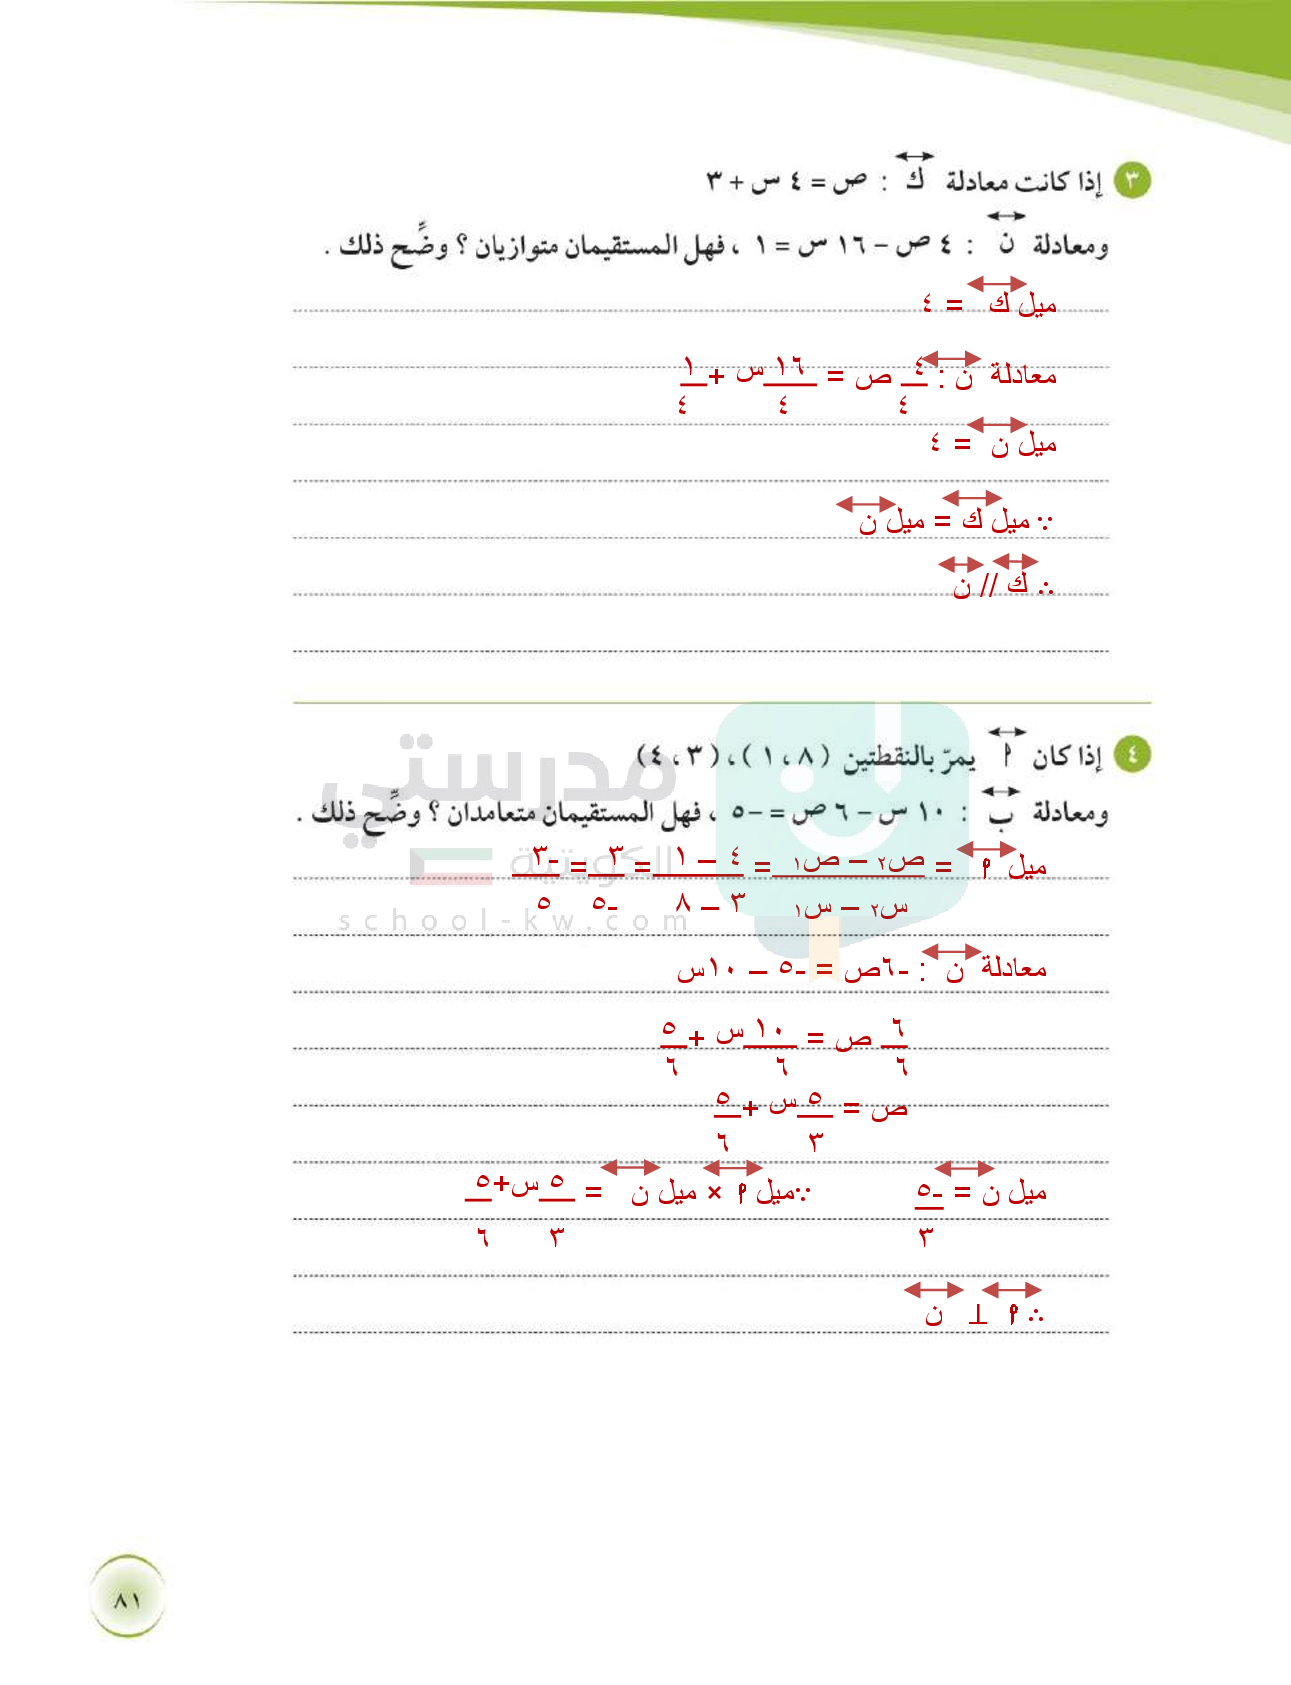 ٣ إذا كانت معادلة ك : ص = ٤ س + ٣
ومعادلة ن : ٤ ص – ١٦ س = ١ ، فهل المستقيمان متوازيان ؟ وضِّح ذلك .
ميل ك = ٤
معادلة ن : ٤/٤ ص = ١٦/٤ س + ١/٤
ميل ن = ٤
∵ ميل ك = ميل ن
∴ ك // ن
٤ إذا كان أ يمرّ بالنقطتين ( ٨ ، ١ ) ، ( ٣ ، ٤ )
ومعادلة ب : ١٠ س – ٦ ص = –٥ ، فهل المستقيمان متعامدان ؟ وضِّح ذلك .
ميل أ = ص٢ – ص١ / س٢ – س١ = ٤ – ١ / ٣ – ٨ = ٣/-٥ = -٣/٥
معادلة ن : -٦ص = -٥ – ١٠س
٦/٦ ص = ١٠/٦ س + ٥/٦
ص = ٥/٣ س + ٥/٦
ميل ن = -٥/٣ ∵ميل أ × ميل ن = ٥/٣ س+ ٥/٦
∴ أ ⊥ ن
مدرستي
الكويتية
school-kw.com
٨١